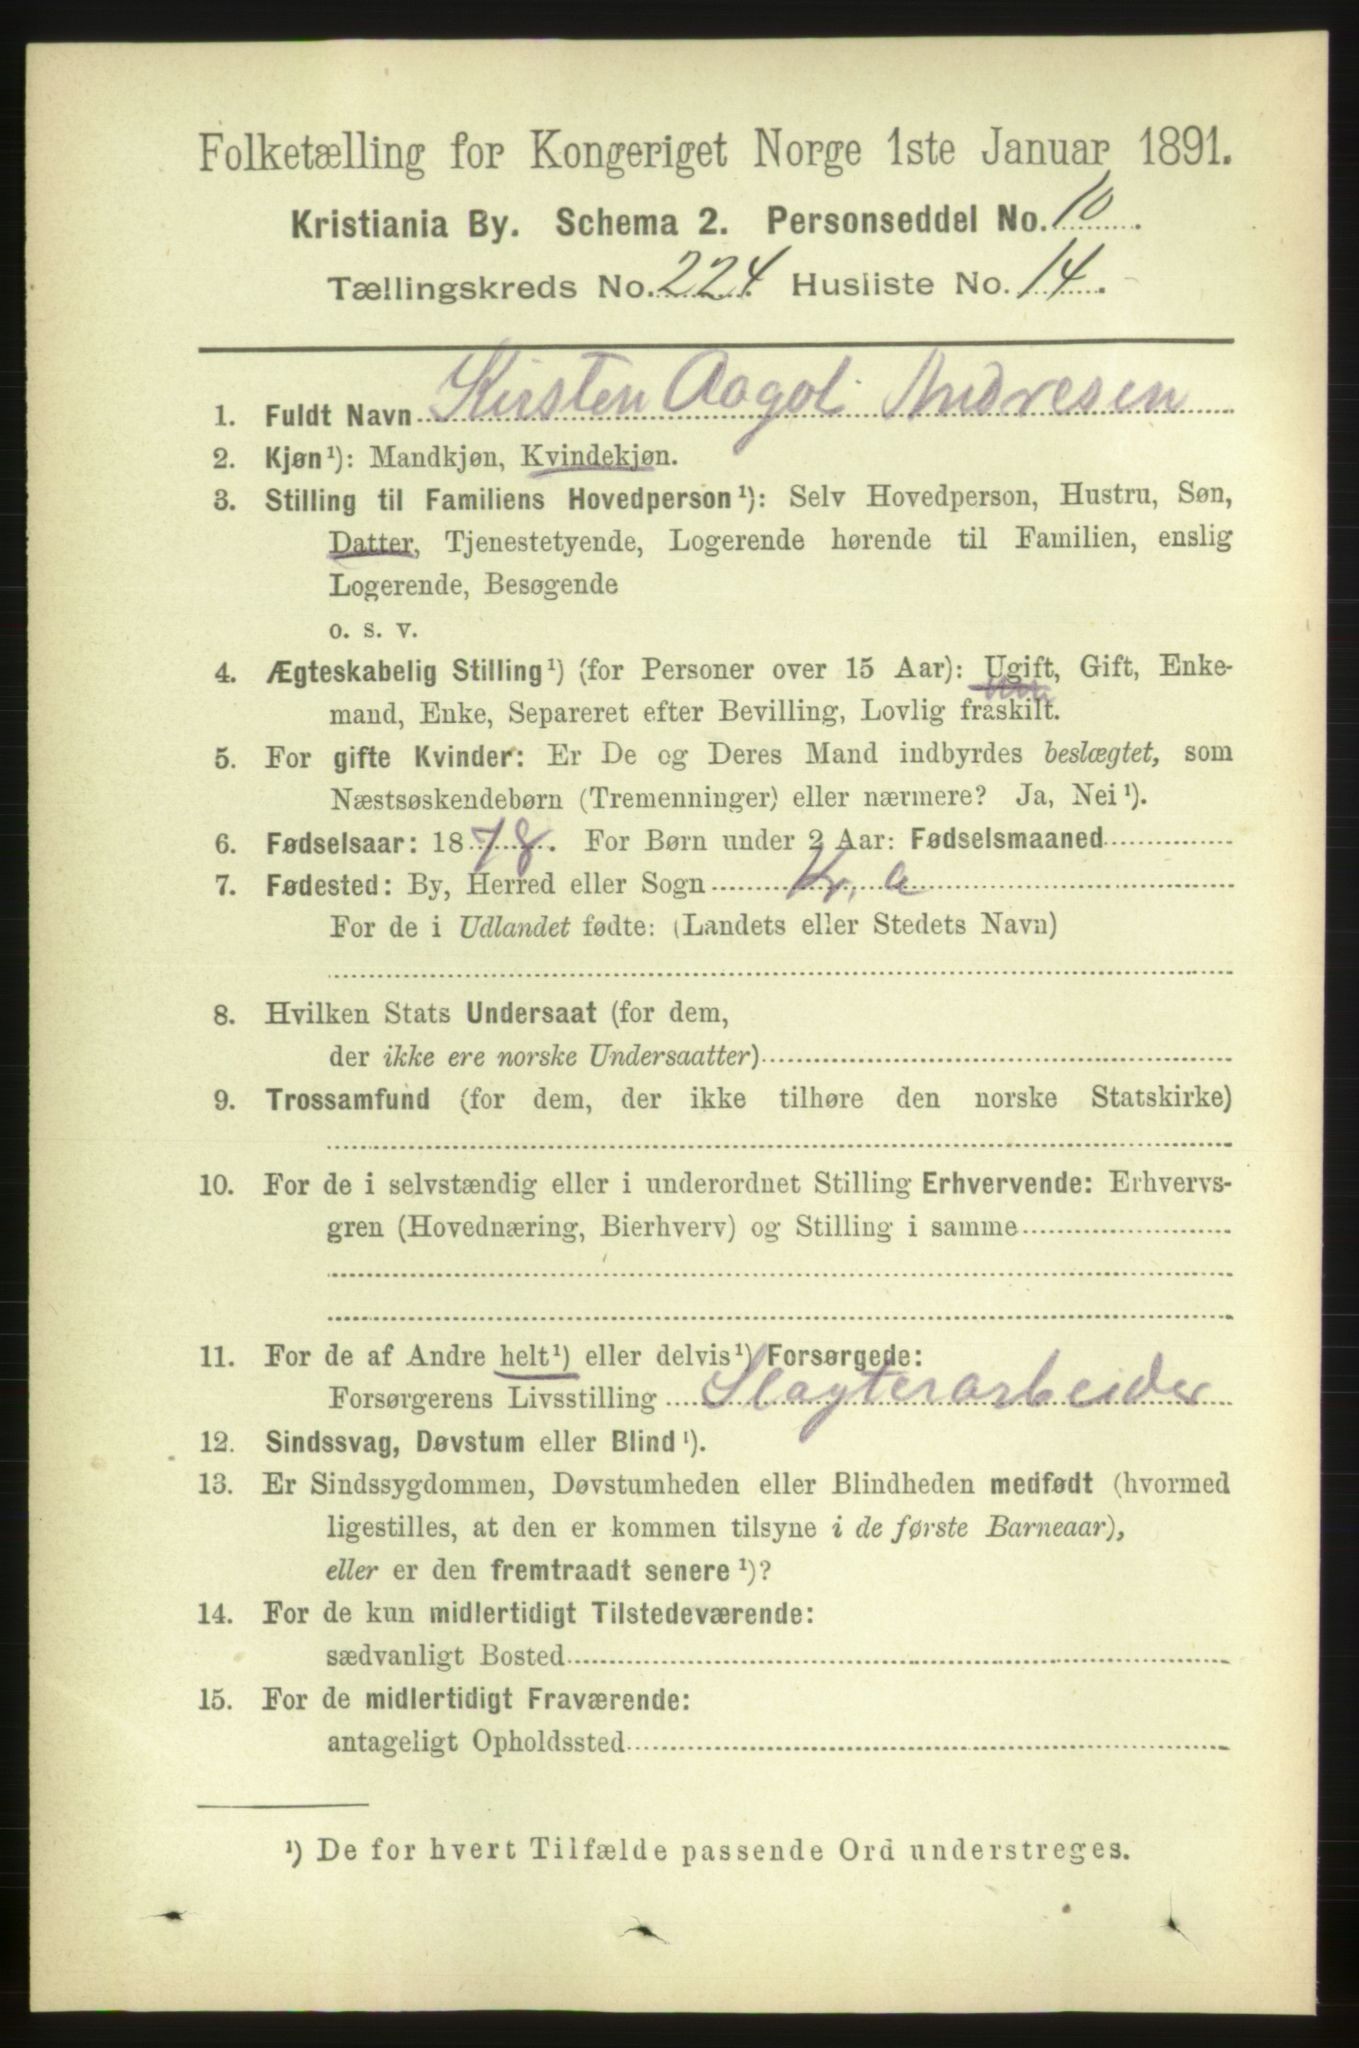 Folketælling for Kongeriget Norge 1ste Januar 1891.
Kristiania By. Schema 2. Personseddel No. 10.
Tællingskreds No. 224 Husliste No. 14.
1. Fuldt Navn Kirsten Aagot Andresen
2. Kjøn¹): Mandkjøn, Kvindekjøn.
3. Stilling til Familiens Hovedperson¹): Selv Hovedperson, Hustru, Søn,
Datter, Tjenestetyende, Logerende hørende til Familien, enslig
Logerende, Besøgende
o. s. v.
4. Ægteskabelig Stilling¹) (for Personer over 15 Aar): Ugift, Gift, Enke-
mand, Enke, Separeret efter Bevilling, Lovlig fraskilt.
5. For gifte Kvinder: Er De og Deres Mand indbyrdes beslægtet, som
Næstsøskendebørn (Tremenninger) eller nærmere? Ja, Nei¹).
6. Fødselsaar: 1878. For Børn under 2 Aar: Fødselsmaaned
7. Fødested: By, Herred eller Sogn Kr. a
For de i Udlandet fødte: (Landets eller Stedets Navn)
8. Hvilken Stats Undersaat (for dem,
der ikke ere norske Undersaatter)
9. Trossamfund (for dem, der ikke tilhøre den norske Statskirke)
10. For de i selvstændig eller i underordnet Stilling Erhvervende: Erhvervs-
gren (Hovednæring, Bierhverv) og Stilling i samme
11. For de af Andre helt¹) eller delvis¹) Forsørgede:
Forsørgerens Livsstilling Slagterarbeider
12. Sindssvag, Døvstum eller Blind¹).
13. Er Sindssygdommen, Døvstumheden eller Blindheden medfødt (hvormed
ligestilles, at den er kommen tilsyne i de første Barneaar),
eller er den fremtraadt senere¹)?
14. For de kun midlertidigt Tilstedeværende:
sædvanligt Bosted
15. For de midlertidigt Fraværende:
antageligt Opholdssted
¹) De for hvert Tilfælde passende Ord understreges.